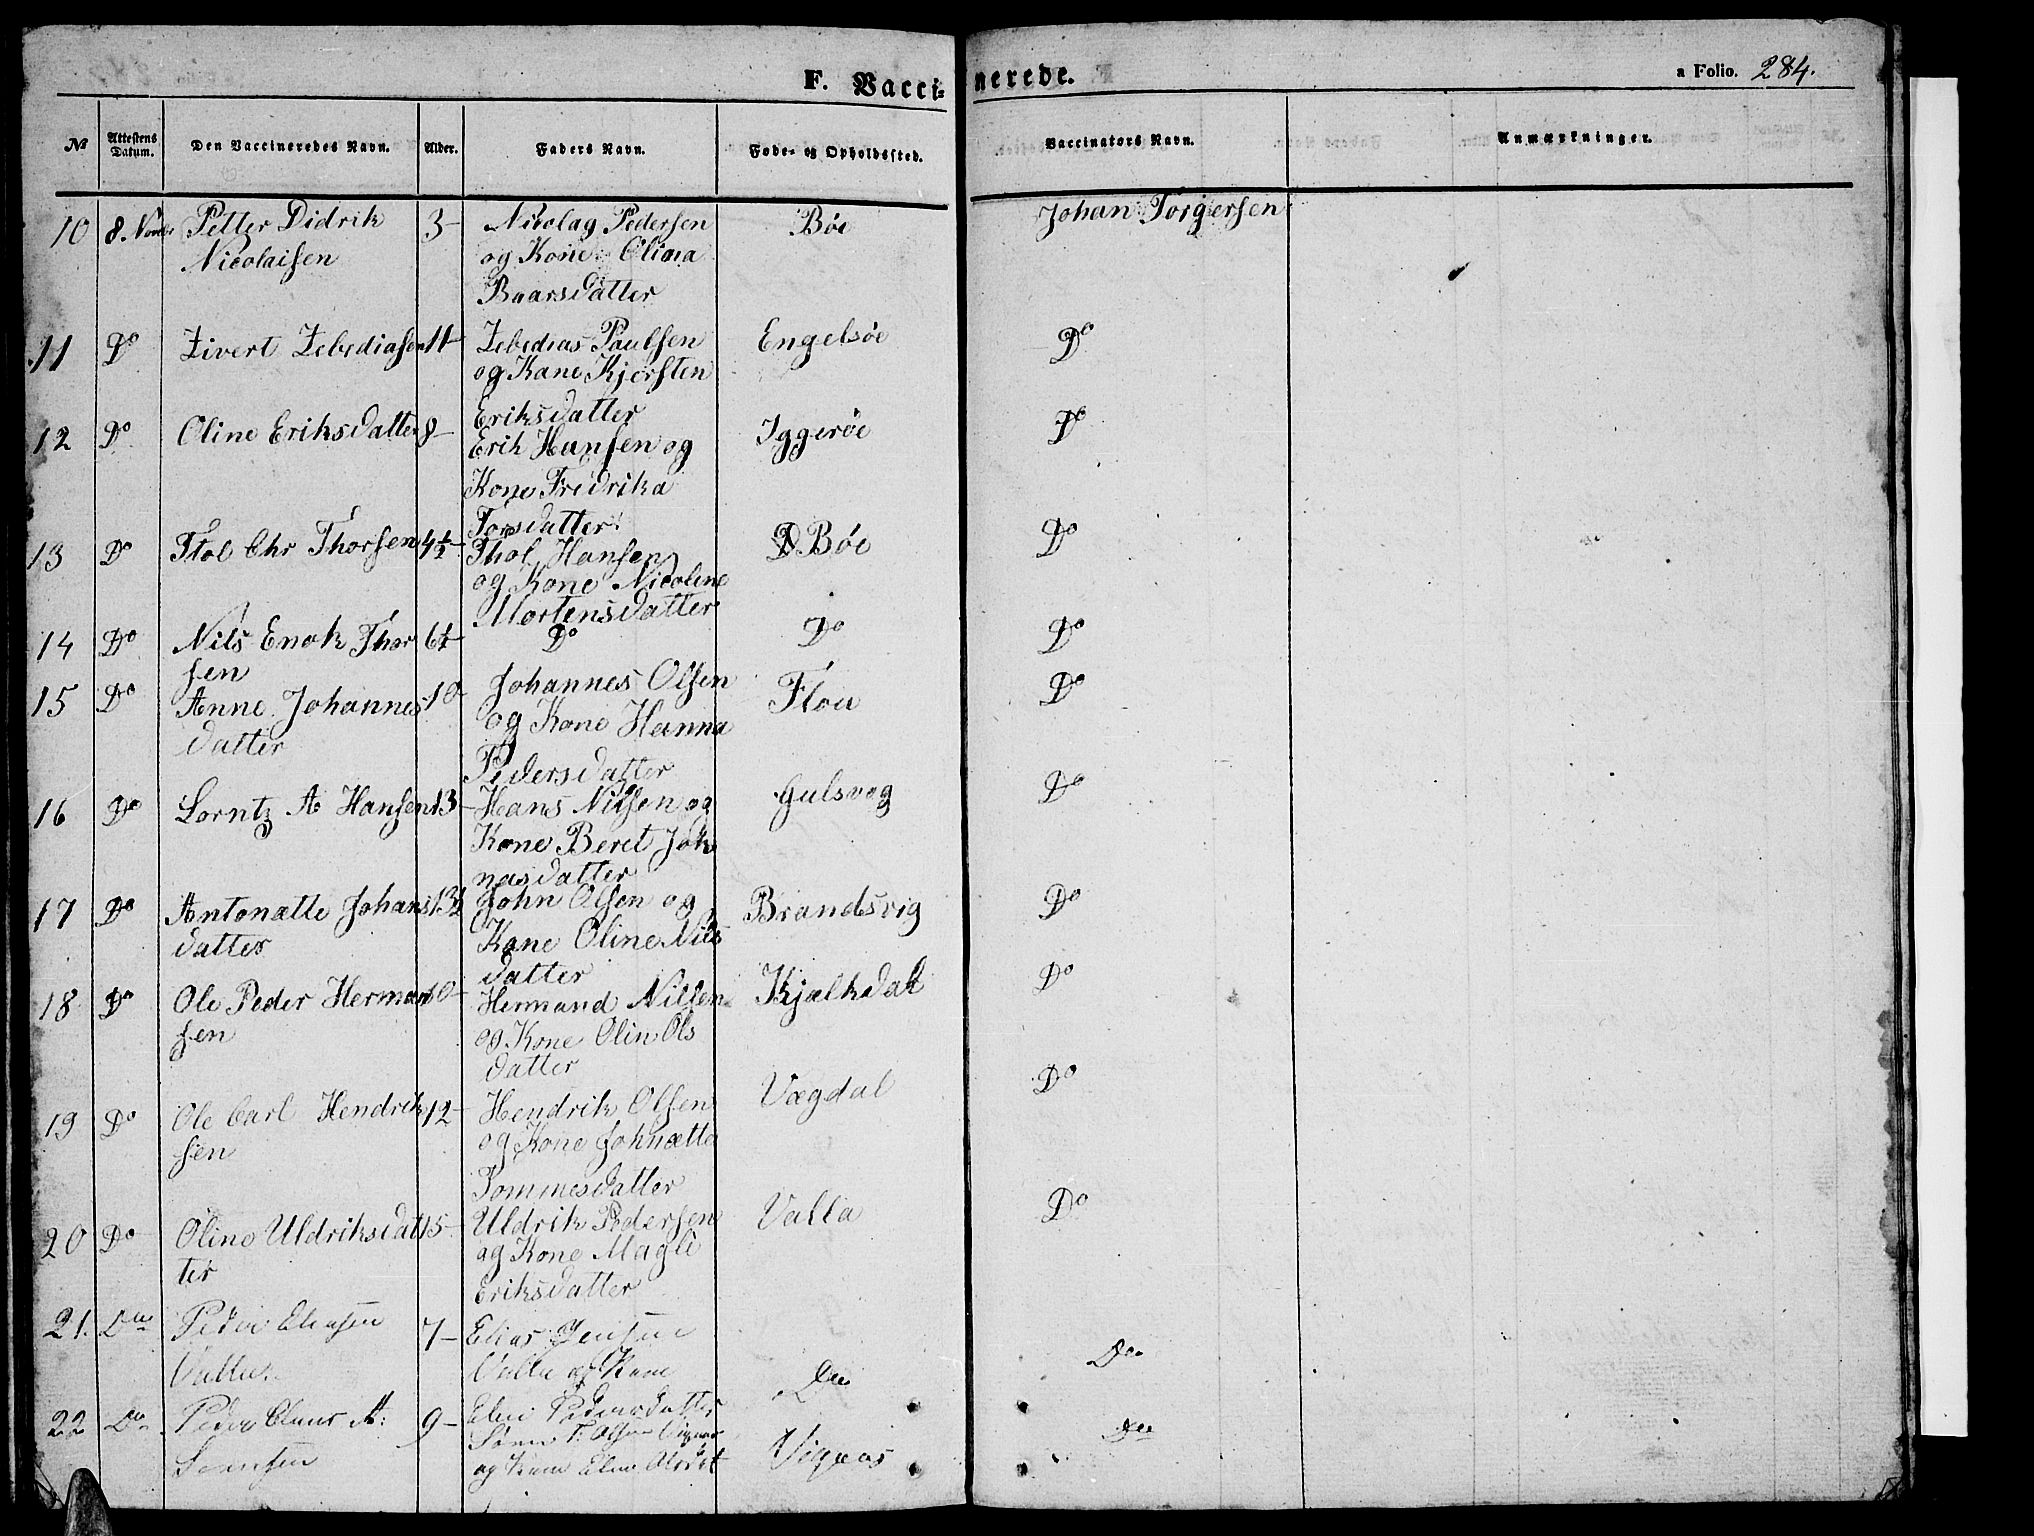 F. Vacci-
nerede.
a Folio. 284.
No
Attestens Datum.
Den Vaccineredes Navn.
Alder.
Faders Navn.
Føde- og Opholdssted.
Vaccinators Navn.
Anmærkninger.
10 8. Petter Didrik 3- Nicolag Pedersen Bøe Johan Torgersen
Nicolaisen og Kone Olina
Baarsdatter
11 Do Zivert Zebediasen 11- Zebedias Paulsen Engelsøe Do
og Kone Kjersten
Eriksdatter
12 Do Oline Eriksdatter 8- Erik Hansen og Iggerøe Do
Kone Fredrika
Torsdatter
13 Do Chr Thorsen 4½- Thol Hansen Bøe Do
og Kone Nicoline
Mortensdatter
14 Do Nils Enok Thor Do Do Do
sen
15 Do Anne Johannes 10- Johannes Olsen Floa Do
datter og Kone Hanna
Pedersdatter
16 Do Lorntz A Hansen 13- Hans Nilsen og Gulsvog Do
Kone Beret Joh
nasdatter
17 Do Antonætte Johans 13½ John Olsen og Brandsvig Do
datter Kone Oline Nils
datter
18 Do Ole Peder Herman 10- Hermand Nilsen Kjælkdal Do
sen og Kone Olin Ols
datter
19 Do Ole Carl Hendrik 12- Hendrik Olsen Vægdal Do
sen og Kone Johnætte
Tommesdatter
20 Do Oline Uldriksdat 15- Uldrik Pedersen Valla Do
ter og Kone Magli
Eriksdatter
21. Do Peder Eliasen 7- Elias Jensen Do
Valla Valla og Kone Do
22 Do Peder Claus A: 9- Elen Pedersdatter Do
Sørensen Søren T. Olsen
og Kone Elen Vignæs